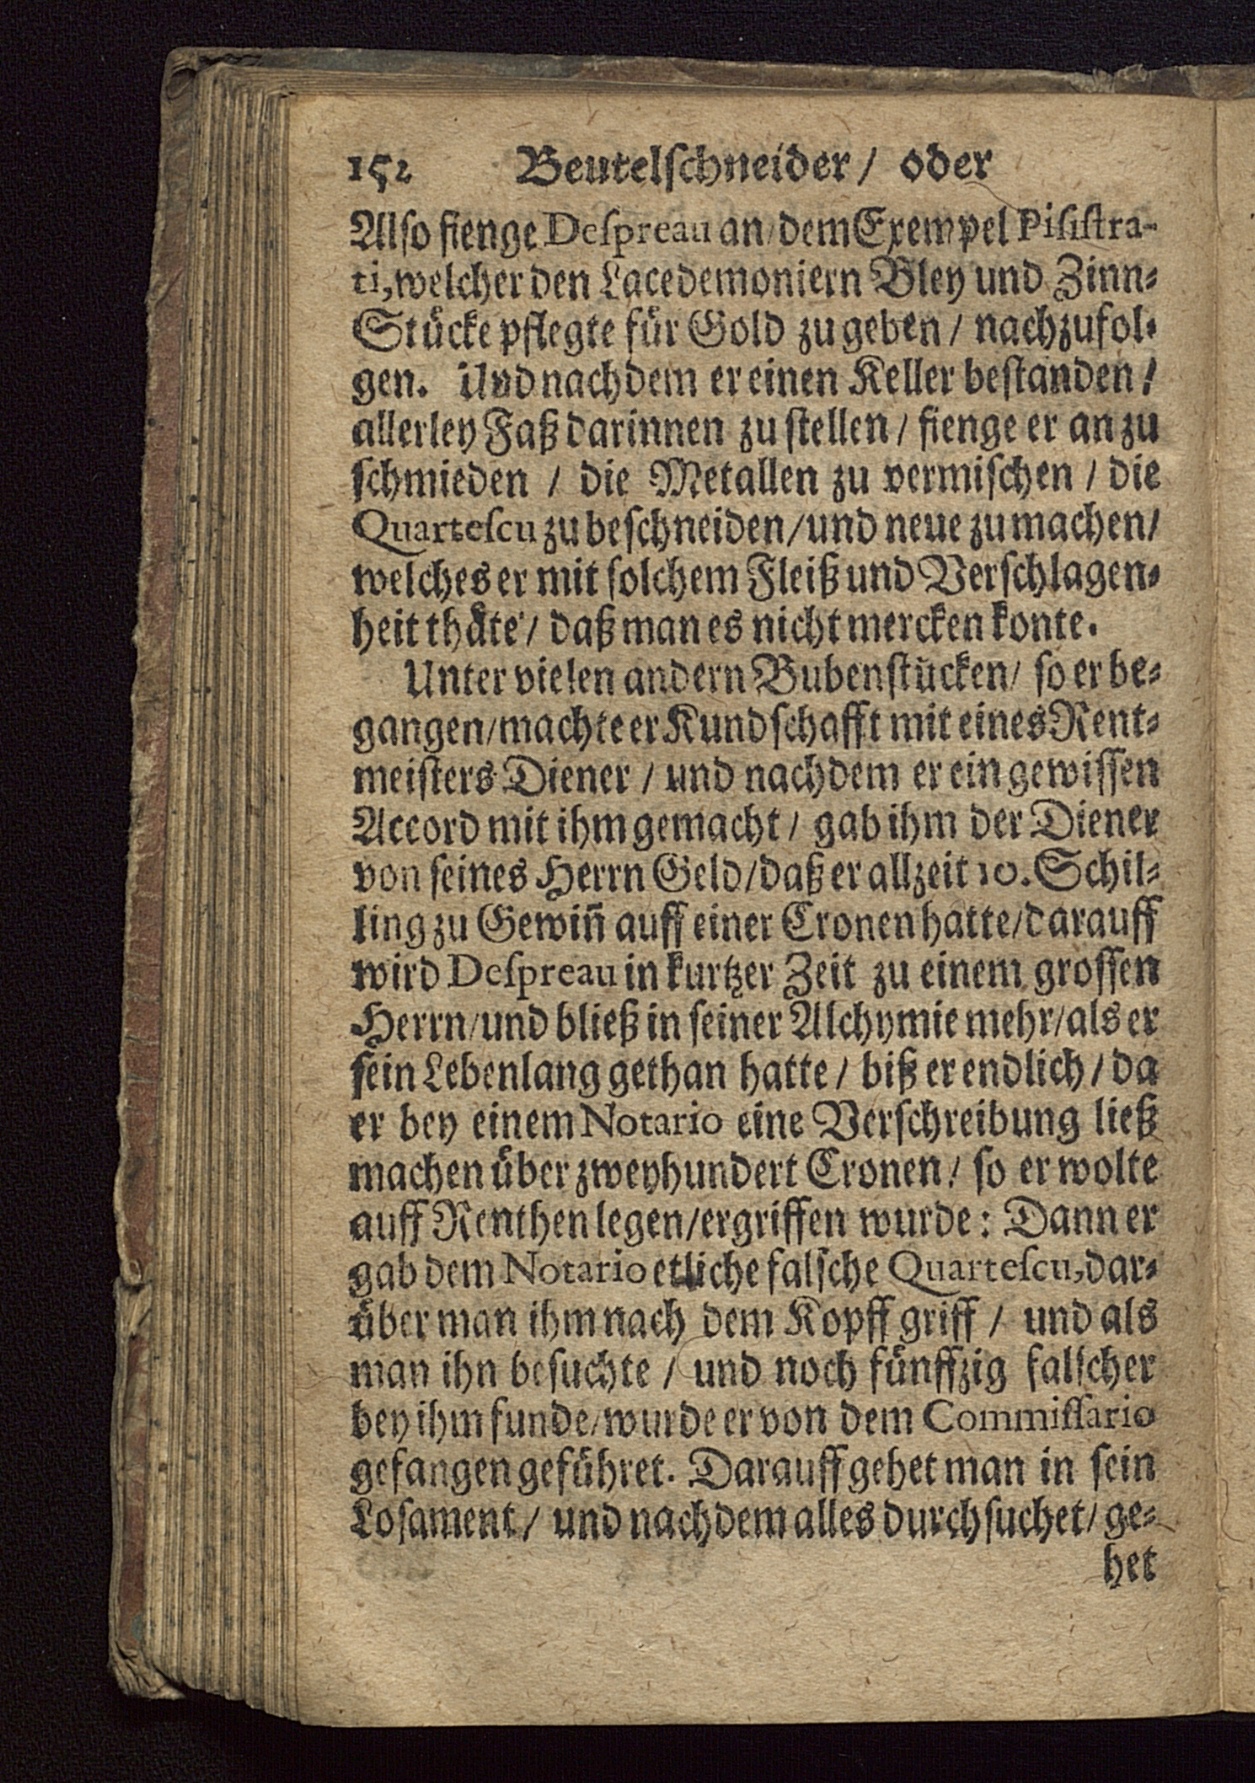 152 Beutelschneider / oder
Also fienge Despreau an / dem Exempel Pisistra-
ti, welcher den Lacedemoniern Bley und Zinn-
Stücke pflegte für Gold zu geben / nachzufol-
gen. Und nachdem er einen Keller bestanden /
allerley Faß darinnen zu stellen / fienge er an zu
schmieden / die Metallen zu vermischen / die
Quartescu zu beschneiden / und neue zu machen /
welches er mit solchem Fleiß und Verschlagen-
heit thäte / daß man es nicht mercken konte.
Unter vielen andern Bubenstücken / so er be-
gangen / machte er Kundschafft mit eines Rent-
meisters Diener / und nachdem er ein gewissen
Accord mit ihm gemacht / gab ihm der Diener
von seines Herrn Geld / daß er allzeit 10. Schil-
ling zu Gewiñ auff einer Cronen hatte / darauff
wird Despreau in kurtzer Zeit zu einem grossen
Herrn / und bließ in seiner Alchymie mehr / als er
sein Lebenlang gethan hatte / biß er endlich / da
er bey einem Notario eine Verschreibung ließ
machen über zweyhundert Cronen / so er wolte
auff Renthen legen / ergriffen wurde: Dann er
gab dem Notario etliche falsche Quartescu, dar-
über man ihm nach dem Kopff griff / und als
man ihn besuchte / und noch fünffzig falscher
bey ihm funde / wurde er von dem Commissario
gefangen geführet. Darauff gehet man in sein
Losament / und nachdem alles durchsuchet / ge-
het